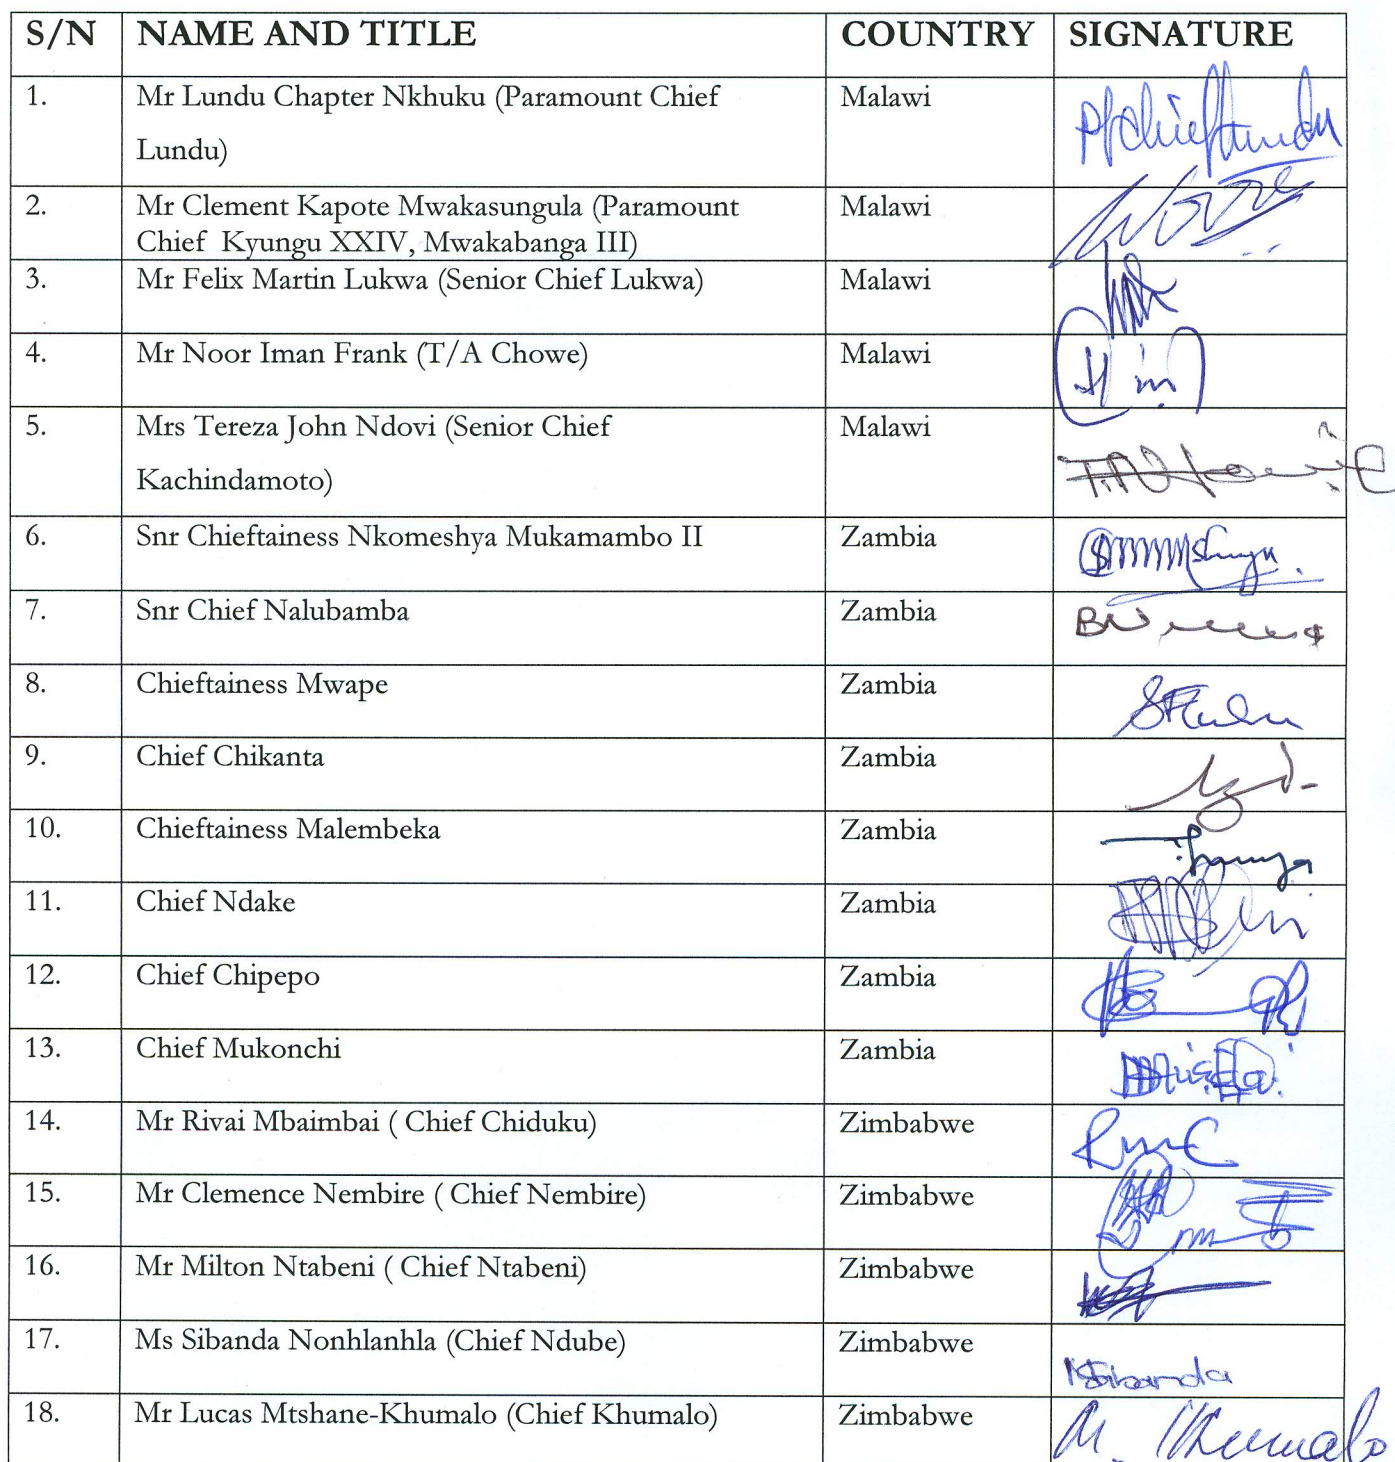 S/N NAME AND TITLE COUNTRY SIGNATURE
1. Mr Lundu Chapter Nkhuku (Paramount Chief Malawi
Lundu)
2. Mr Clement Kapote Mwakasungula (Paramount Malawi
Chief Kyungu XXIV, Mwakabanga III)
3. Mr Felix Martin Lukwa (Senior Chief Lukwa) Malawi
4. Mr Noor Iman Frank (T/A Chowe) Malawi
5. Mrs Tereza John Ndovi (Senior Chief Malawi
Kachindamoto)
6. Snr Chieftainess Nkomeshya Mukamambo II Zambia
7. Snr Chief Nalubamba Zambia
8. Chieftainess Mwape Zambia
9. Chief Chikanta Zambia
10. Chieftainess Malembeka Zambia
11. Chief Ndake Zambia
12. Chief Chipepo Zambia
13. Chief Mukonchi Zambia
14. Mr Rivai Mbaimbai ( Chief Chiduku) Zimbabwe
15. Mr Clemence Nembire ( Chief Nembire) Zimbabwe
16. Mr Milton Ntabeni ( Chief Ntabeni) Zimbabwe
17. Ms Sibanda Nonhlanhla (Chief Ndube) Zimbabwe
18. Mr Lucas Mtshane-Khumalo (Chief Khumalo) Zimbabwe M. Khumalo